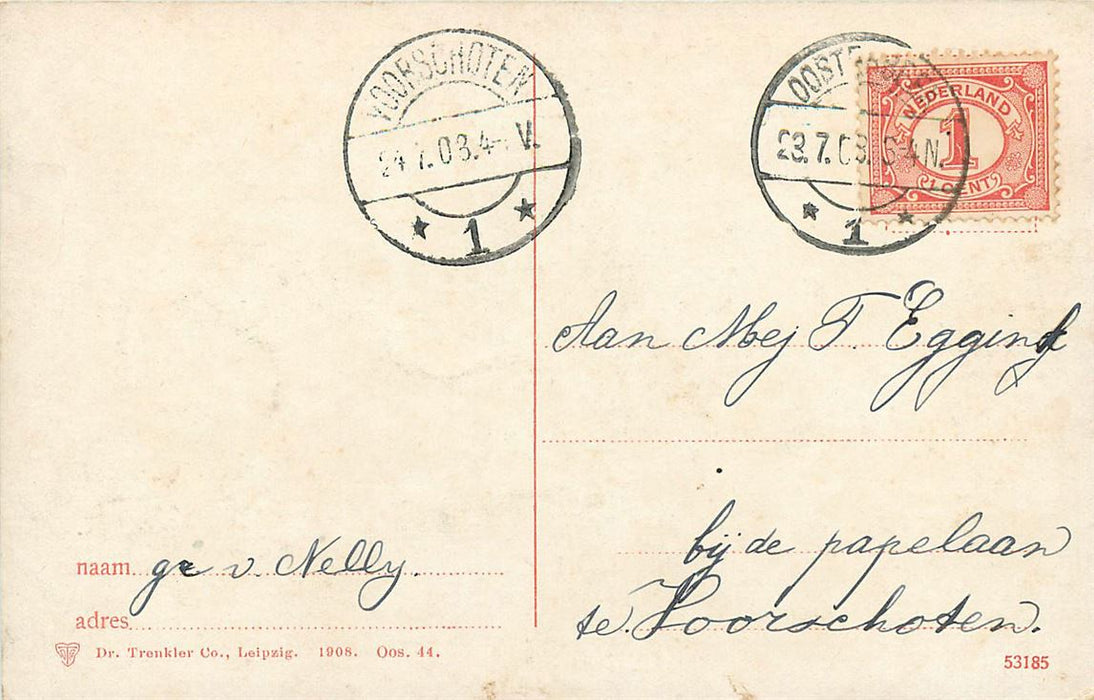 VOORSCHOTEN
24 7.08.4- V.
1
23.7.08. 3-4N.
1
NEDERLAND
1
1 CENT
Aan Mej F. Eggink
bij de papelaan
te Voorschoten.
naam gr v. Nelly.
adres
Dr. Trenkler Co., Leipzig. 1908. Oos. 44.
53185